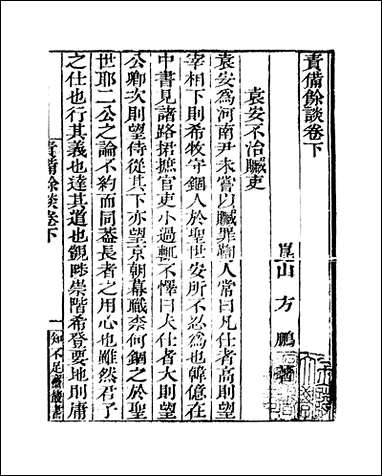 責備餘談卷下
崑山方鵬著
袁安不治贓吏
袁安為河南尹未嘗以贓罪鞫人常曰凡仕者高則望
宰相下則希牧守錮人於聖世安所不忍為也韓億在
中書見諸路捃摭官吏小過輒不懌曰大仕者大則望
公卿次則望侍從其下亦望京朝幕職柰何錮之於聖
世耶二公之論不約而同葢長者之用心也雖然君子
之仕也行其義也達其道也觀時崇階希登要地則庸
責備餘談卷下
一
知不足齋叢書